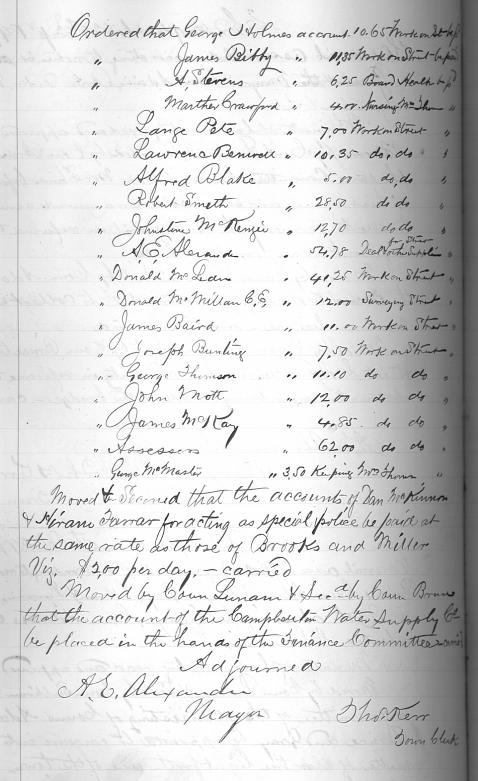 Ordered that George J Holmes account 10.65 Work on St be pd
" James Bibby " 11.35 Work on Street be paid
" A. Stevens " 6.25 Board Health be pd
" Marther Crawford " 4.00 Nursing Mrs Thom "
" Lange Pete " 7.00 Work on Street "
" Lawrence Benwell " 10.35 do. do "
" Alfred Blake " 5.00 do. do "
" Robert Smeth " 28.50 do do "
" Johnstine McKenzie " 12.70 do do "
" A.E. Alexander " 54.78 for Street Supplies "
" Donald McLean " 41.25 Work on Street "
" Donald McMillan C.E. " 12.00 Surveying Street "
" James Baird " 11.00 Work on Street "
" Joseph Bunting " 7.50 Work on Street "
" George Thomson " 11.10 do do "
" John Mott " 12.00 do do "
" James McKay " 4.85 do do "
" Assessors " 62.00 do do "
" George McMaster " 3.50 Keeping Mrs Thom "
Moved & Seconed that the accounts of Dan McKinnon
& Hiram Farrar for acting as special police be paid at
the same rate as those of Brooks and Miller
Viz. $2.00 per day. – carried
Moved by Coun Lunam & Secd by Coun Bruce
that the account of the Campbellton Water Supply Co
be placed in the hands of the Finance Committee carried
Adjourned
A. E. Alexander
Mayor Thos. Kerr
Town Clerk